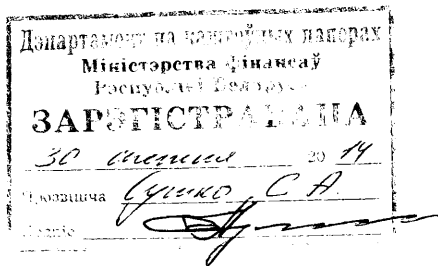 Дэпартамент па каштоўных паперах
Міністэрства фінансаў
Рэспублікі Беларусь
ЗАРЭГІСТРАВАНА
30 20 14
Прозвішча Сушко С А.
Подпіс